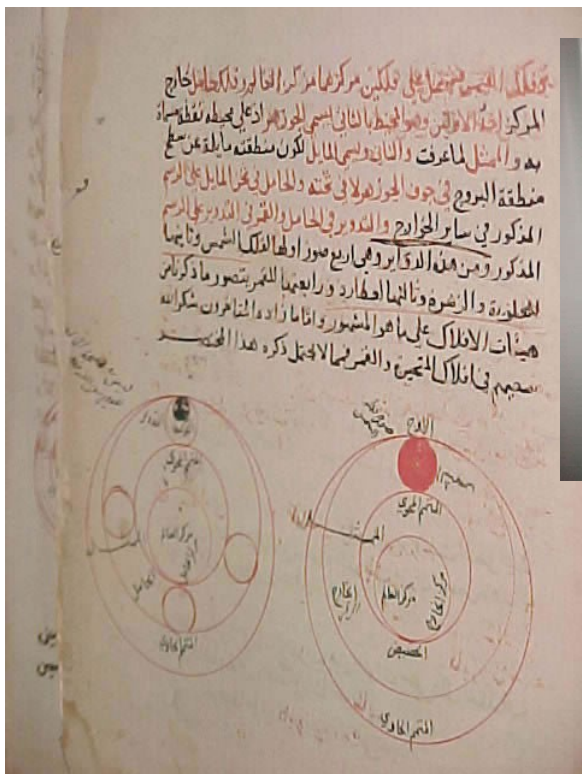 فلك القمر فيشتمل على فلكين مركزهما مركز العالم وفلك حامل خارج
المركز احد الاولين وهو المحيط بالثاني يسمى الجوزهر اذ على محيطه نقطة مسماة
به والممثل لما عرفت والثاني يسمى المايل لكون منطقته مايلة عن سطح
منطقة البروج في جوف الجوزهر لا في ثخنه والحامل في ثخن المايل على الرسم
المذكور في ساير الخوارج والتدوير في الحامل والقمر في التدوير على الرسم
المذكور ومن هذه الدواير وهي اربع صور اولها لفلك الشمس وثانيتها
للعلوية والزهرة وثالثها لعطارد ورابعتها للقمر يتصور ما ذكرنا من
هيئات الافلاك على ما هو المشهور واما ما زاده المتاخرون شكر الله
سعيهم في افلاك المتحيرة والقمر فمما لا يحتمل ذكره هذا المختصر
الاوج
المتمم المحوي
مركز العالم
مركز الخارج
الخارج
الحضيض
المتمم الحاوي
المتمم المحوي
مركز العالم
الحامل
المتمم الحاوي